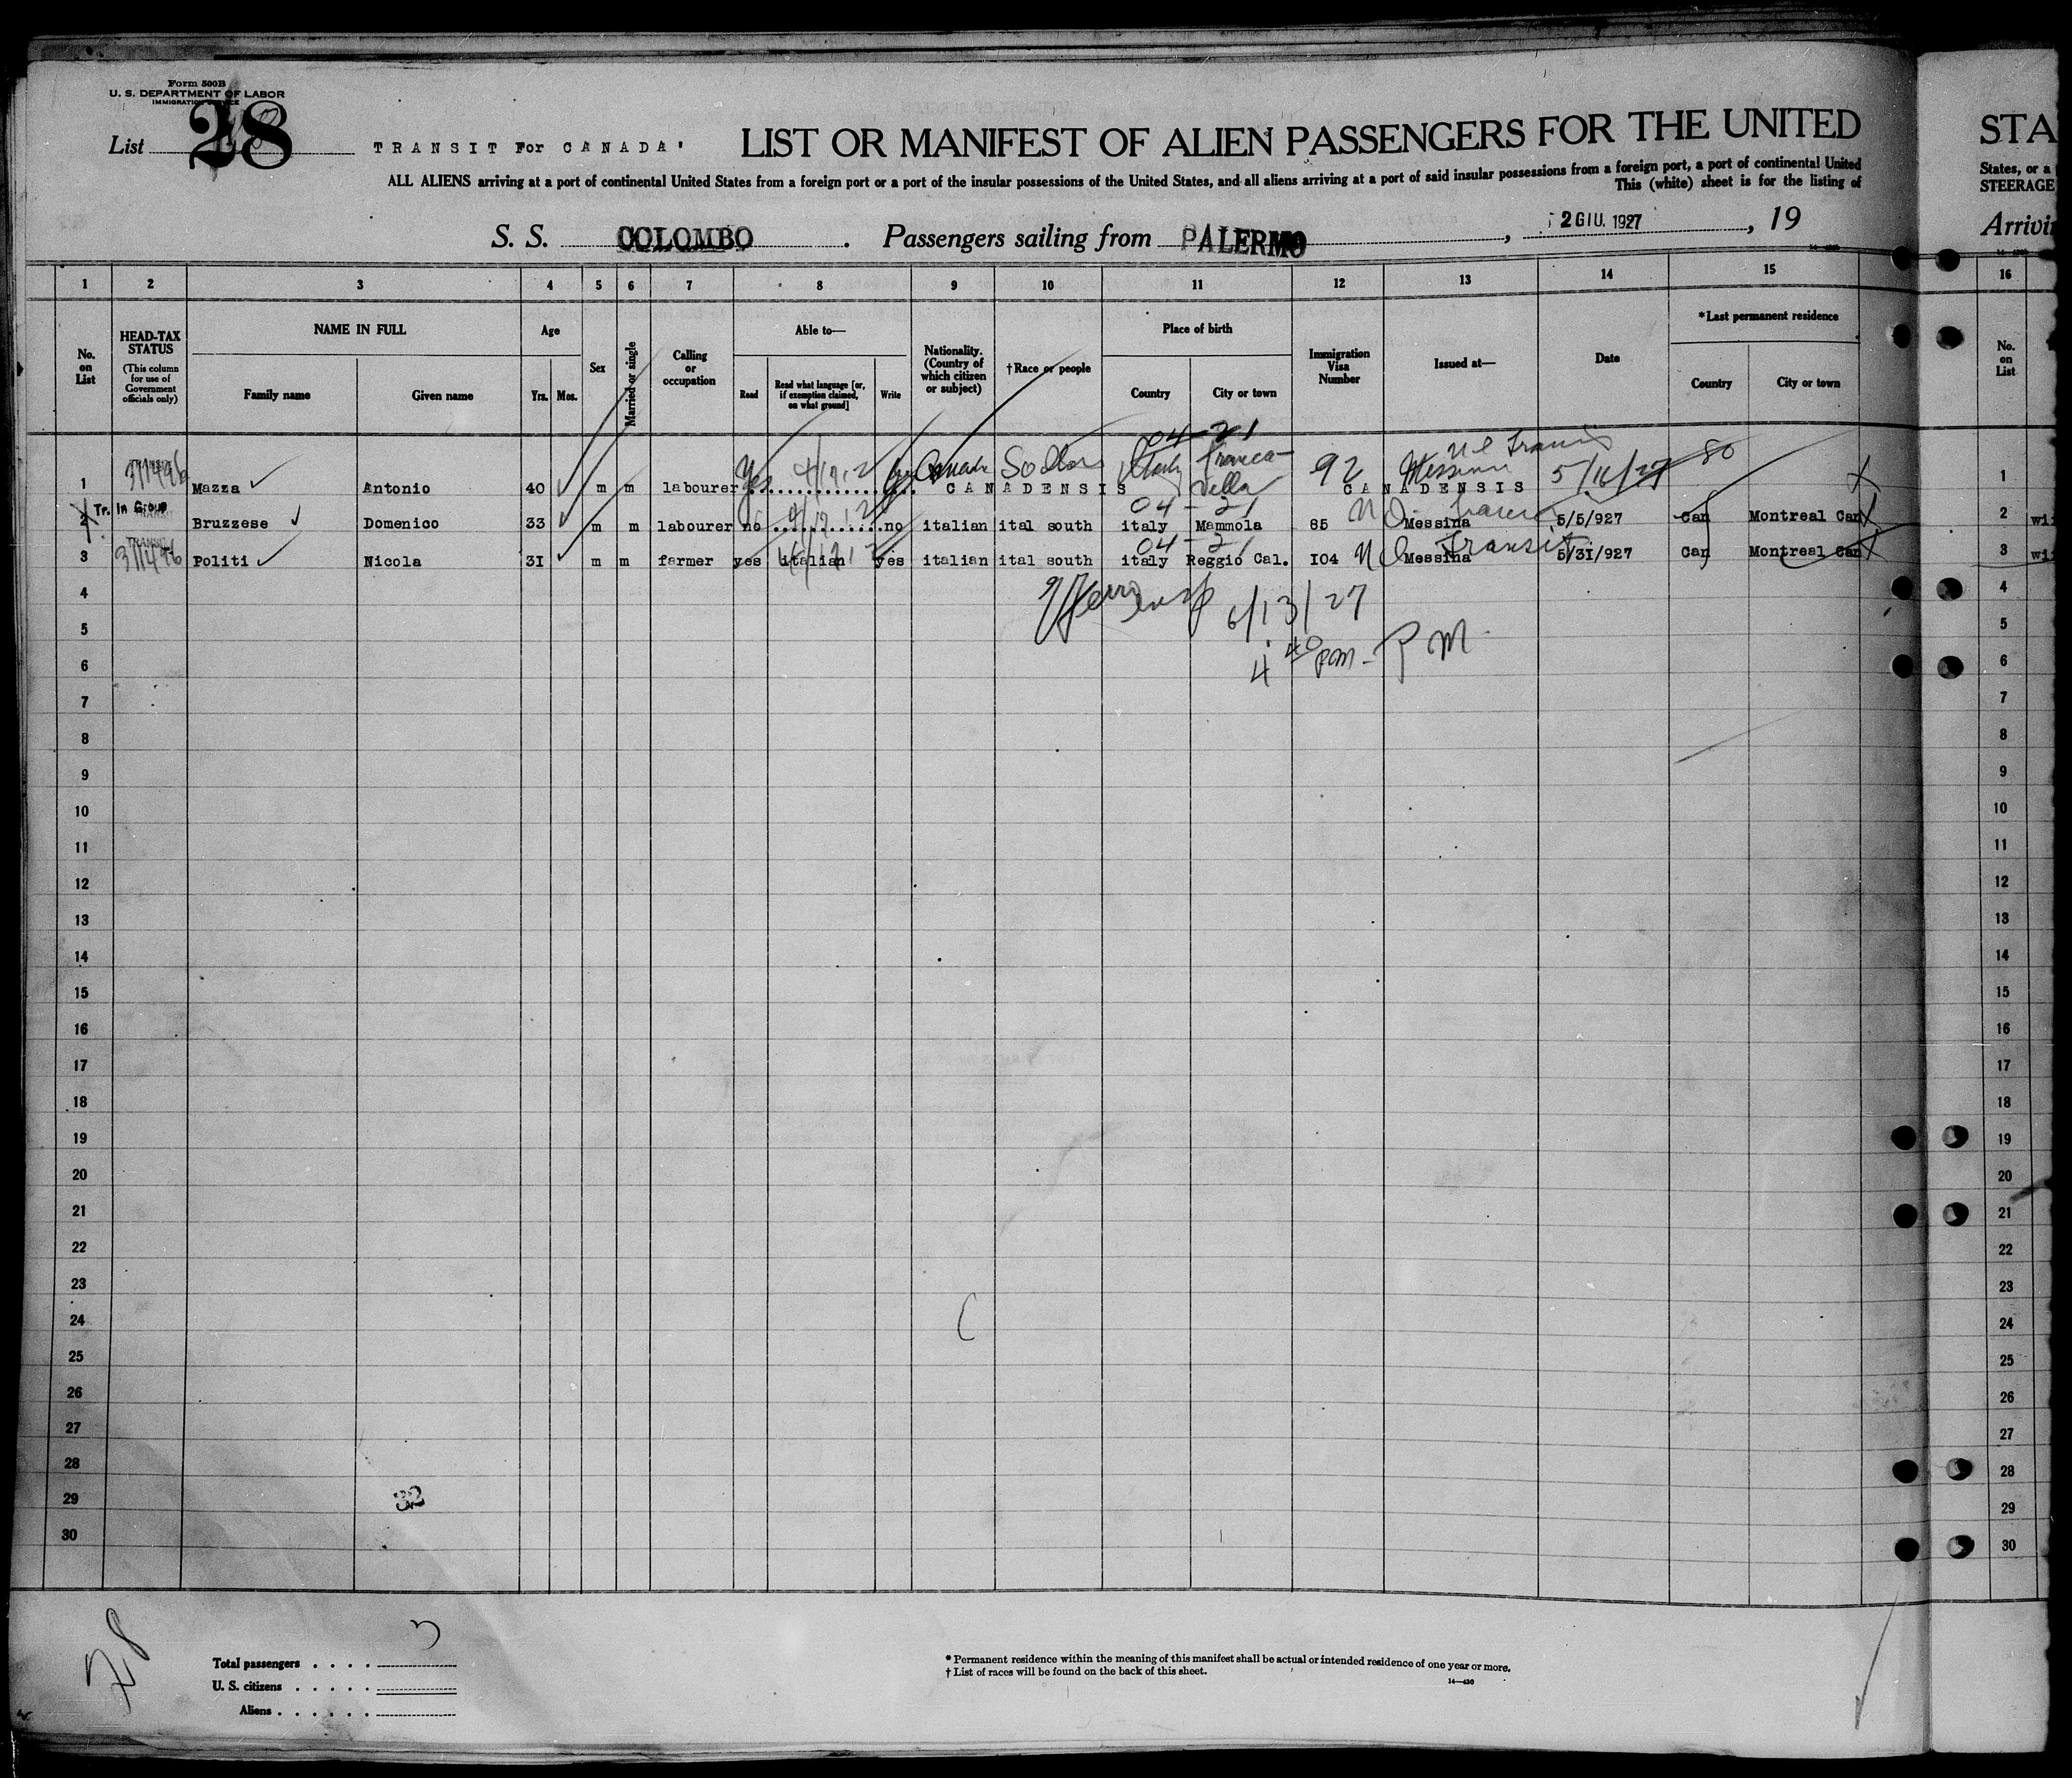 Form 500B
U. S. DEPARTMENT OF LABOR
IMMIGRATION SERVICE
List 28
TRANSIT For CANADA'
LIST OR MANIFEST OF ALIEN PASSENGERS FOR THE UNITED STA
ALL ALIENS arriving at a port of continental United States from a foreign port or a port of the insular possessions of the United States, and all aliens arriving at a port of said insular possessions from a foreign port, a port of continental United States, or a
This (white) sheet is for the listing of STEERAGE
S. S. COLOMBO . Passengers sailing from PALERMO , 2 GIU. 1927 , 19 Arrivin
1 2 3 4 5 6 7 8 9 10 11 12 13 14 15 16
No. on List
HEAD-TAX STATUS
(This column for use of Government officials only)
NAME IN FULL
Family name
Given name
Age
Yrs. Mos.
Sex
Married or single
Calling or occupation
Able to—
Read
Read what language [or, if exemption claimed, on what ground]
Write
Nationality. (Country of which citizen or subject)
†Race or people
Place of birth
Country
City or town
Immigration Visa Number
Issued at—
Date
*Last permanent residence
Country
City or town
No. on List
04-21
1 Mazza Antonio 40 m m labourer Yes Canada So Italian Italy Franca- villa 92 Messina 5/16/27 80 1
CANADENSIS CANADENSIS
Tr. In Group
04-21
2 Bruzzese Domenico 33 m m labourer no no italian ital south italy Mammola 85 Messina 5/5/927 Can Montreal Can 2 wi
TRANSIT
04-21
3 311496 Politi Nicola 31 m m farmer yes italian yes italian ital south italy Reggio Cal. 104 Messina Transit 5/31/927 Can Montreal Can 3 wi
4 insp 6/13/27 4
5 5
6 4 40 pm - P M 6
7 7
8 8
9 9
10 10
11 11
12 12
13 13
14 14
15 15
16 16
17 17
18 18
19 19
20 20
21 21
22 22
23 23
24 24
25 25
26 26
27 27
28 28
29 32 29
30 30
28
3
Total passengers
U. S. citizens
Aliens
* Permanent residence within the meaning of this manifest shall be actual or intended residence of one year or more.
† List of races will be found on the back of this sheet.
14—430